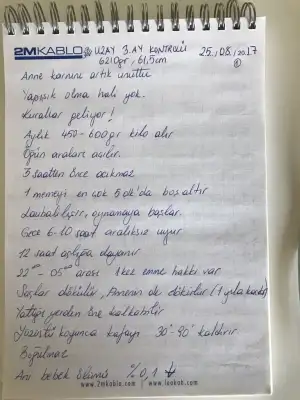 2MKABLO UZAY 3.AY KONTROLÜ 25/08/2017
6210gr, 61,5cm
Anne karnını artık unuttu
Yapışık olma hali yok.
Kurallar geliyor!
Aylık 450-600gr kilo alır
Öğün araları açılır.
3 saatten önce acıkmaz
1 memeyi en çok 5 dk'da boşaltır
Laubalileşir, oynamaya başlar.
Gece 6-10 saat aralıksız uyur
12 saat açlığa dayanır
22°° - 05°° arası 1 kez emme hakkı var
Saçlar dökülür, Annenin de dökülür (1 yıla kadar)
Yattığı yerden öne kalkabilir
Yüzüstü koyunca kafayı 30°-90° kaldırır
Boğulmaz
Ani bebek ölümü %0,1 ↓
www.2mkablo.com www.lookob.com